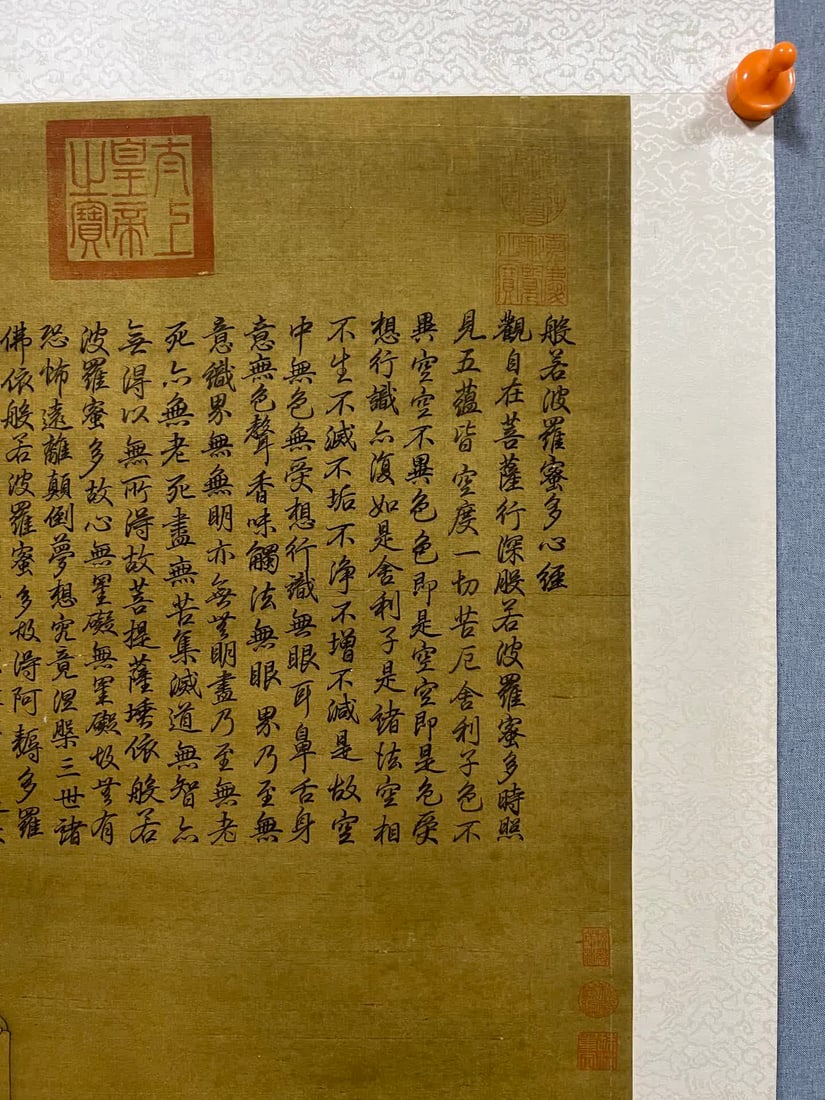 般若波羅蜜多心經
觀自在菩薩行深般若波羅蜜多時照
見五蘊皆空度一切苦厄舍利子色不
異空空不異色色即是空空即是色受
想行識亦復如是舍利子是諸法空相
不生不滅不垢不淨不增不減是故空
中無色無受想行識無眼耳鼻舌身
意無色聲香味觸法無眼界乃至無
意識界無無明亦無無明盡乃至無老
死亦無老死盡無苦集滅道無智亦
無得以無所得故菩提薩埵依般若
波羅蜜多故心無罣礙無罣礙故無有
恐怖遠離顛倒夢想究竟涅槃三世諸
佛依般若波羅蜜多故得阿耨多羅
太上
皇帝
之寶